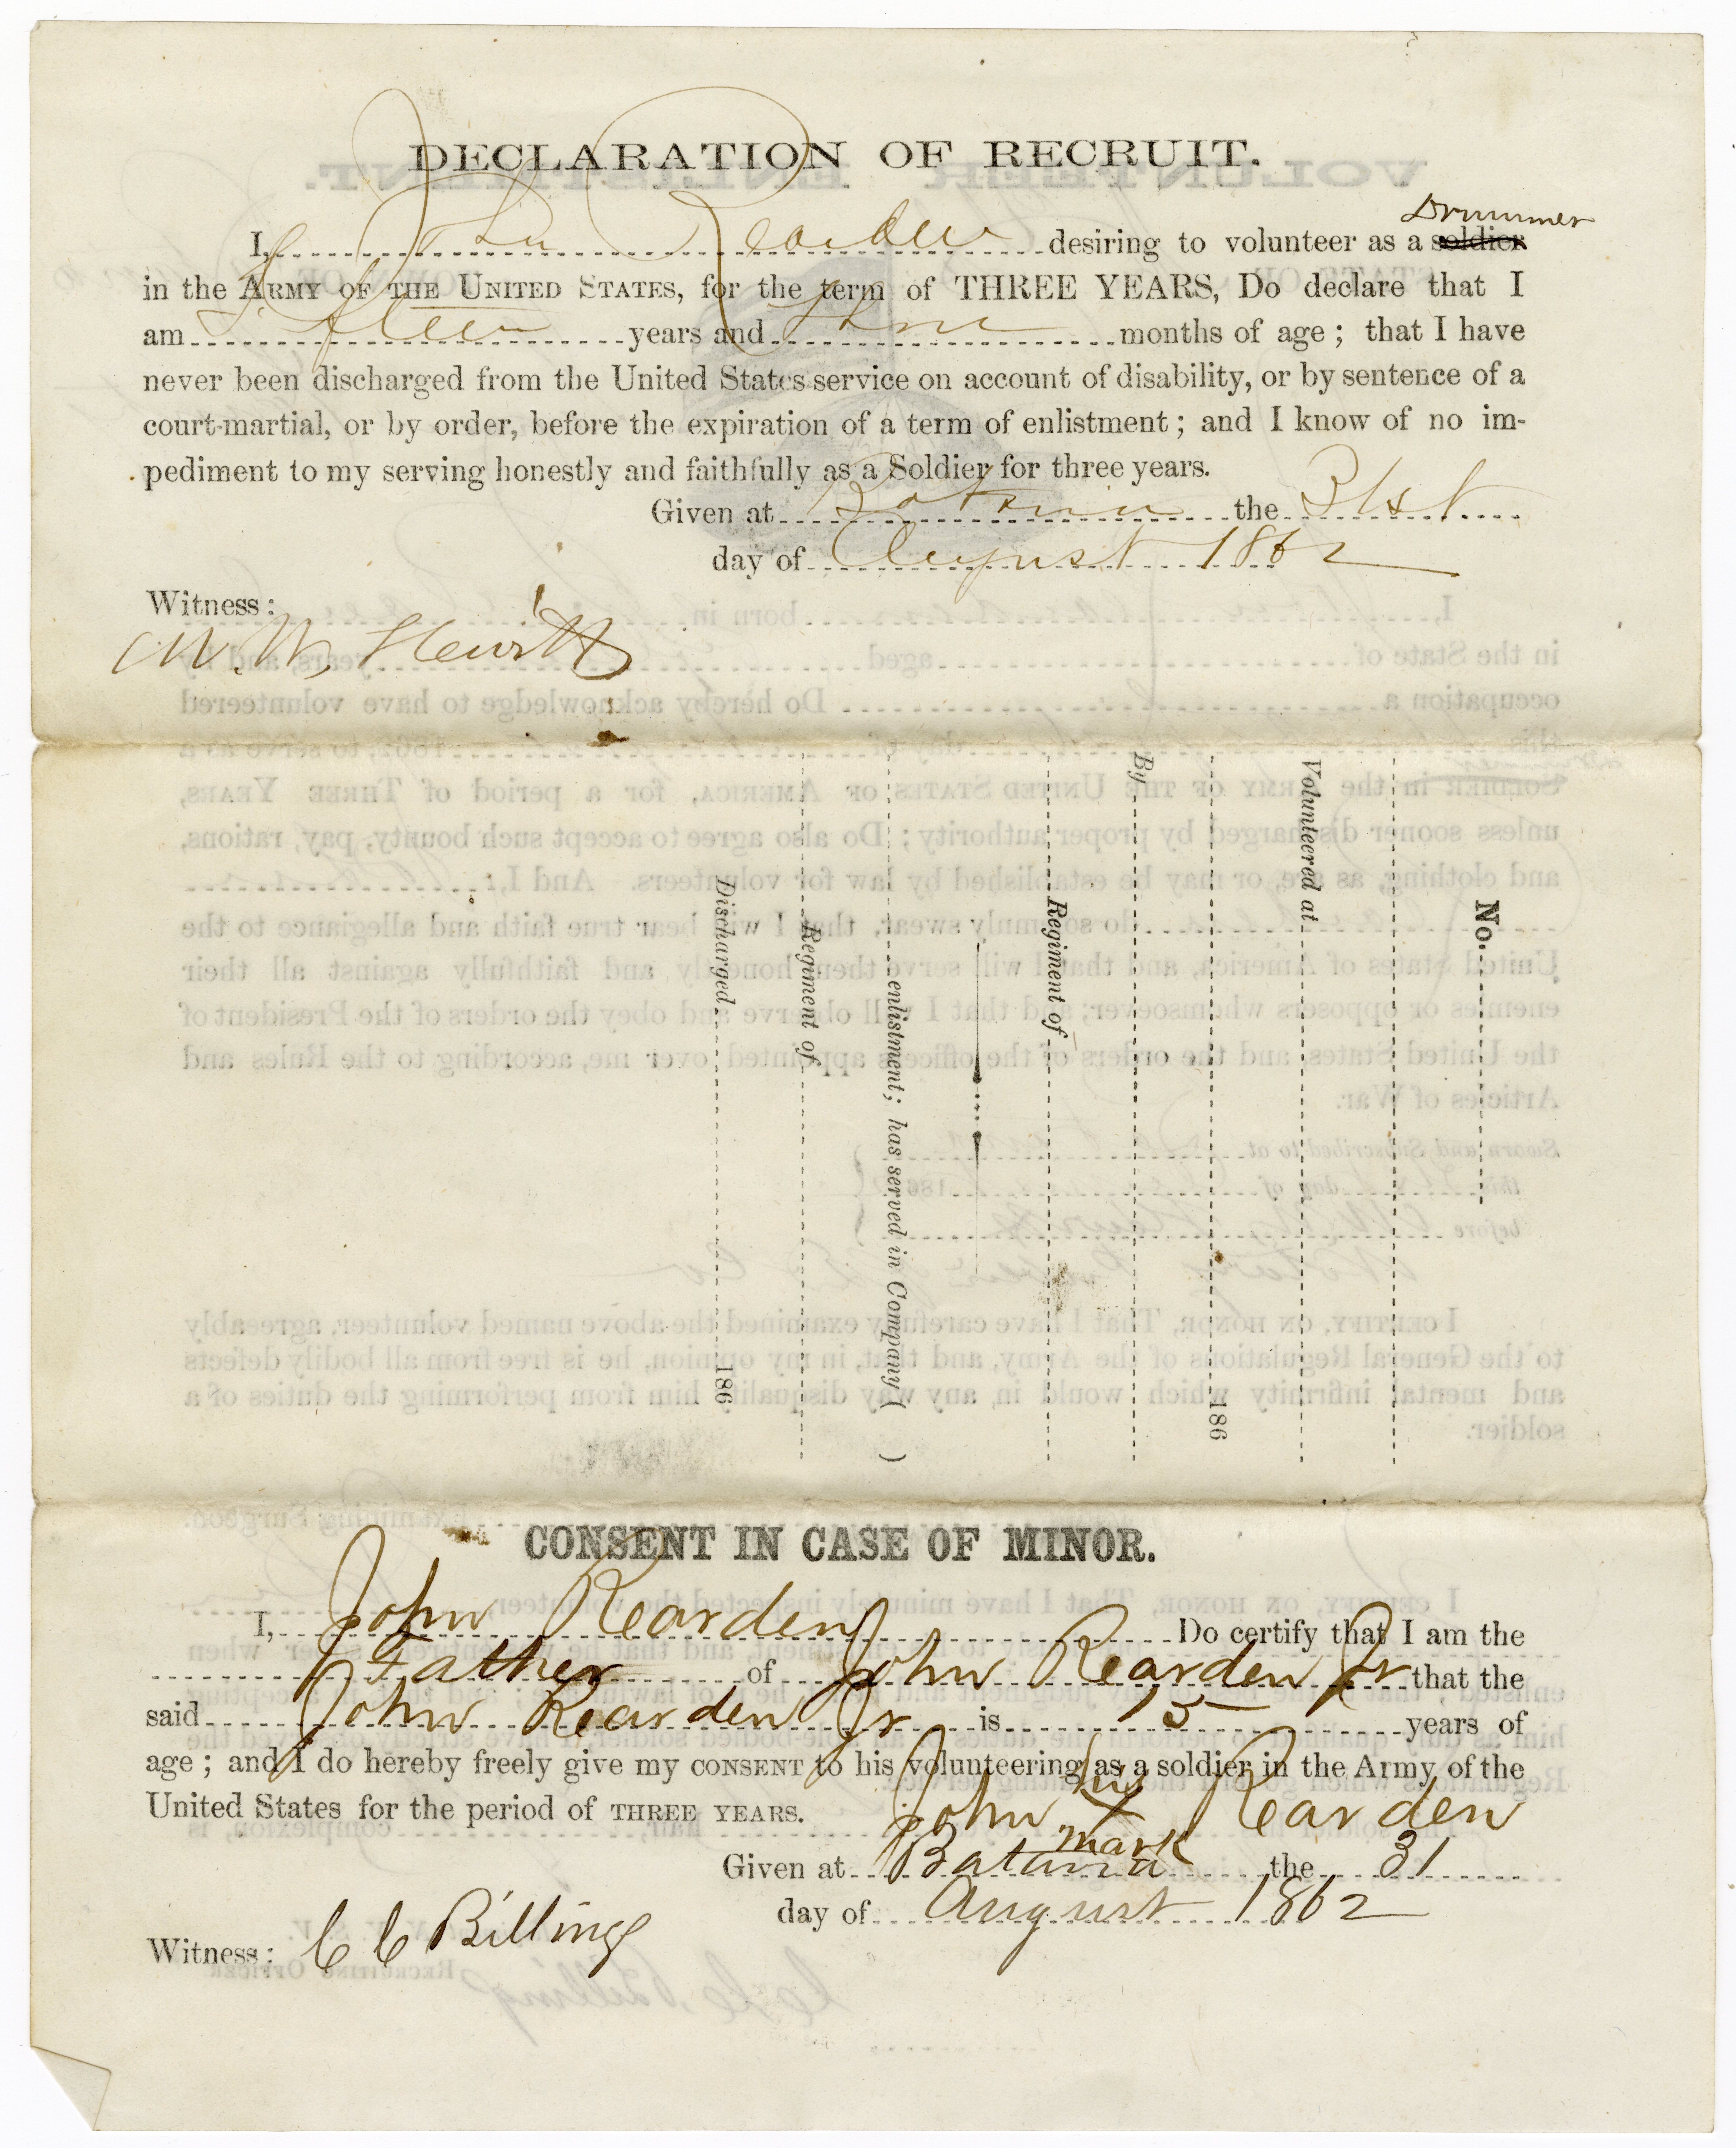 DECLARATION OF RECRUIT.
Drummer
I, John Rearden desiring to volunteer as a soldier
in the ARMY OF THE UNITED STATES, for the term of THREE YEARS, Do declare that I
am Fifteen years and months of age; that I have
never been discharged from the United States service on account of disability, or by sentence of a
court-martial, or by order, before the expiration of a term of enlistment; and I know of no im-
pediment to my serving honestly and faithfully as a Soldier for three years.
Given at Batavia the 31st
day of August 1862
Witness:
W. Hewitt
No.
Volunteered at
186
By
Regiment of
enlistment; has served in Company ( )
Regiment of
Discharged 186
CONSENT IN CASE OF MINOR.
I, John Rearden Do certify that I am the
Father of John Rearden Jr that the
said John Rearden Jr is 15 years of
age; and I do hereby freely give my CONSENT to his volunteering as a soldier in the Army of the
United States for the period of THREE YEARS.
his
John X Rearden
mark
Given at Batavia the 31
day of August 1862
Witness: C C Billings